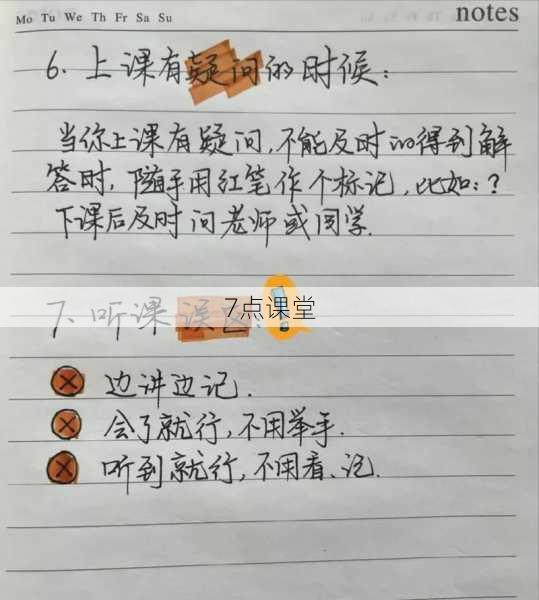 Mo Tu We Th Fr Sa Su
notes
6. 上课有疑问的时候:
当你上课有疑问,不能及时的得到解
答时,随手用红笔作个标记,比如:?
下课后及时问老师或同学.
7点课堂
7、听课误区:!
边讲边记.
会了就行,不用举手.
听到就行,不用看、记.